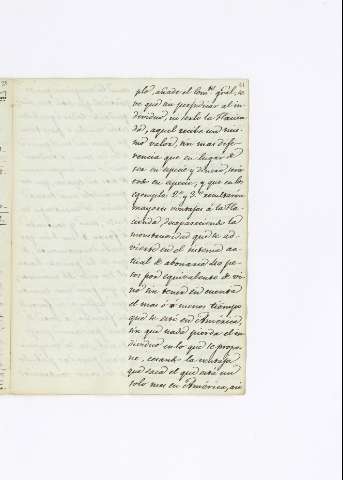 41
plo, añade el Com.te gral, se
ve que sin perjudicar al in-
dividuo, ni esto la Hacien-
da, aquel recibe un mis-
mo valor, sin mas dife-
rencia que en lugar de
ser en especie y dinero, será
todo en especie; y que en los
egemplos 2.º y 3.º resultaran
mayores ventajas á la Ha-
cienda desapareciendo la
monstruosidad que se ad-
vierte en el sistema ac-
tual de abonarse dos pe-
sos por equivalente de vi-
no sin tener en cuenta
el mas ó menos tiempo
que se esté en América,
sin que nada pierda el in-
dividuo en lo que se propo-
ne, cesando la ventaja
que saca el que está un
solo mes en América, sin